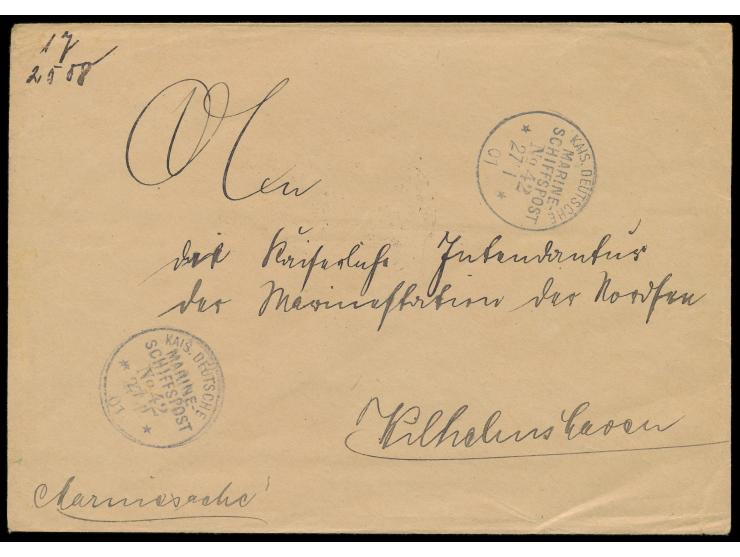 17
2508
KAIS. DEUTSCHE
MARINE-
SCHIFFSPOST
No. 42
27 1
01
An
die Kaiserliche Intendantur
der Marinestation der Nordsee
KAIS. DEUTSCHE
MARINE-
SCHIFFSPOST
No. 42
27 1
01
Wilhelmshaven
Marinesache